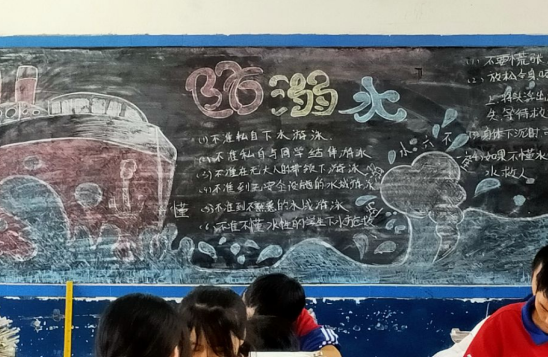 防溺水
六不
(1)不准私自下水游泳
(2)不准私自与同学结伴游泳
(3)不准在无大人的带领下游泳
(4)不准到无安全设施的水域游泳
(5)不准到不熟悉的水域游泳
(6)不准不懂水性的学生下水
懂
(1)不要慌张
(2)放松全身
上
身体下沉时
如果不懂水
水救人